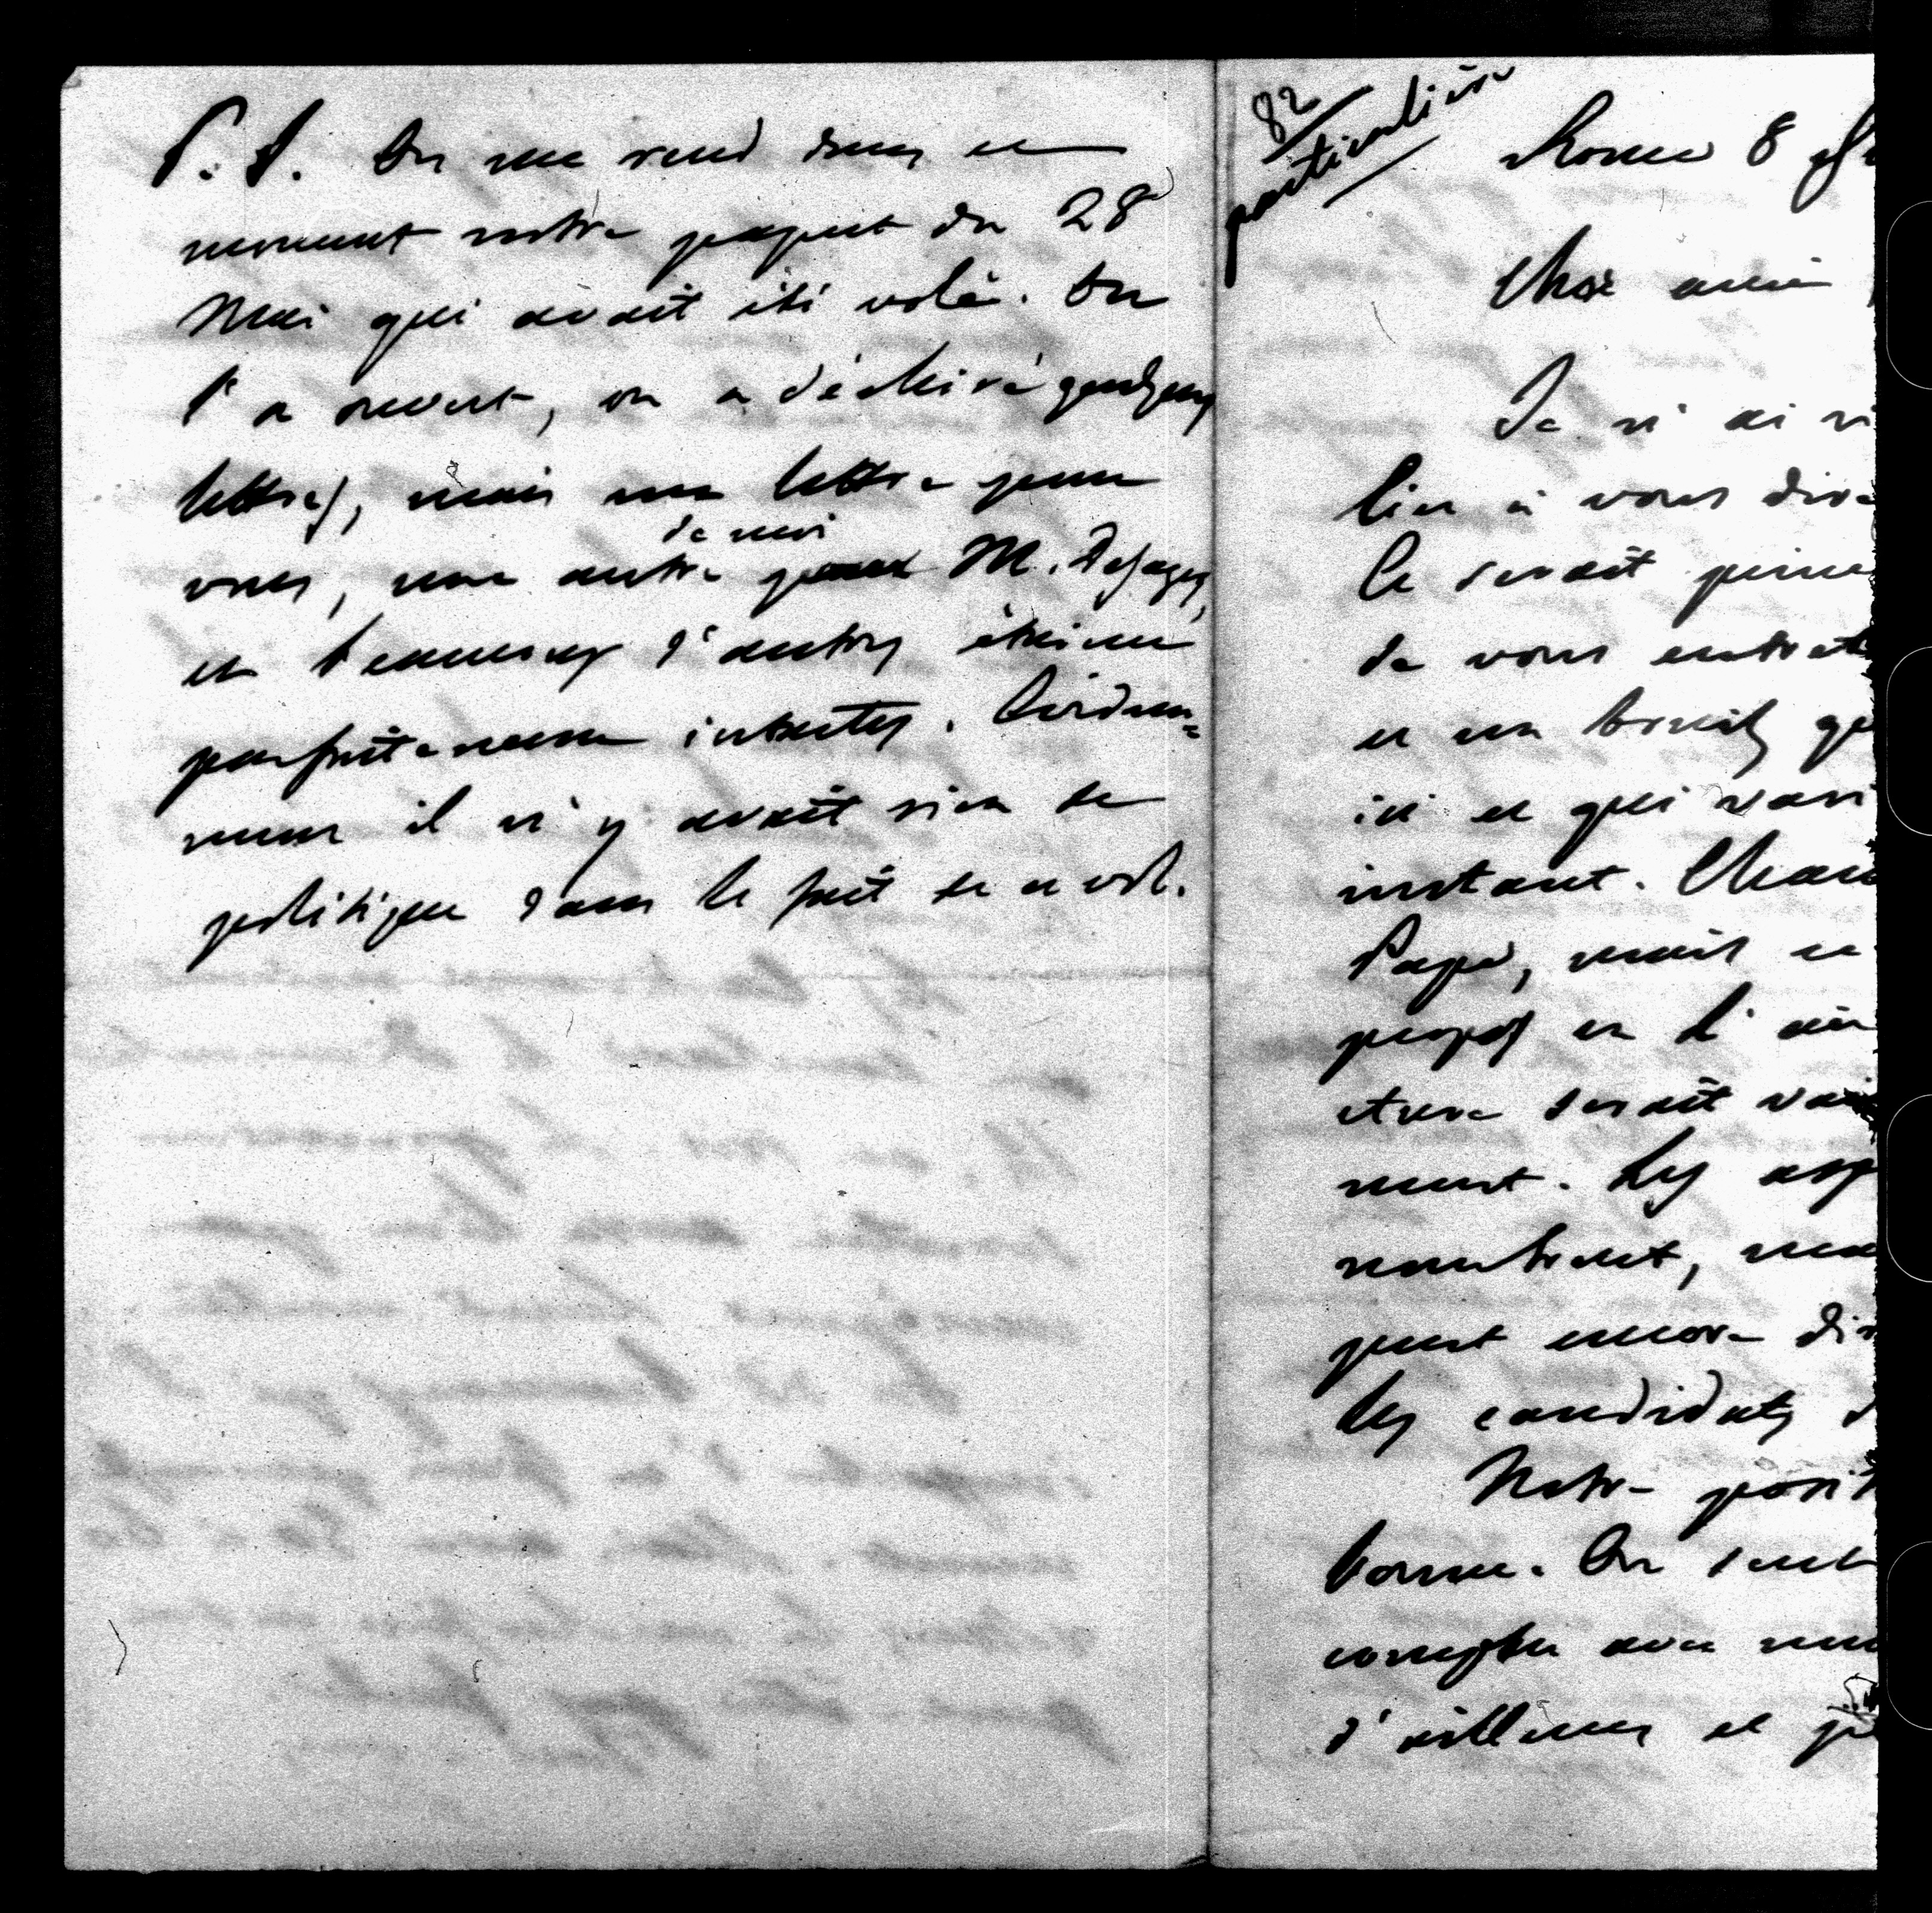 P. S. On me rend dans ce
moment notre paquet du 28
Mai qui avait été volé. On
l'a ouvert, on a déchiré quelques
lettres, mais une lettre pour
vous, une autre de moi pour M. Desages,
et beaucoup d'autres étaient
parfaitement intactes. Évidem=
ment il n'y avait rien de
politique dans le fait de ce vol.
82
particulière
Rome 8
Cher ami
Je n'ai
lier à vous dire
Ce serait
de vous
et un bruit
ici et qui
instant.
Pape, mais ce
propos en l'
serait
ment. Les
nombreux,
peut encore
Les candidats
Notre
bonne. On sent
compter avec
d'ailleurs et